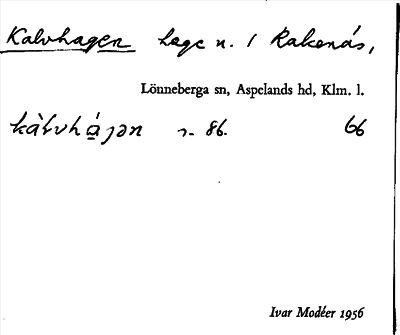 Kalvhagen hage n. / Rakenäs,
Lönneberga sn, Aspelands hd, Klm. l.
kàlvhá̱gən s. 86. 66
Ivar Modéer 1956